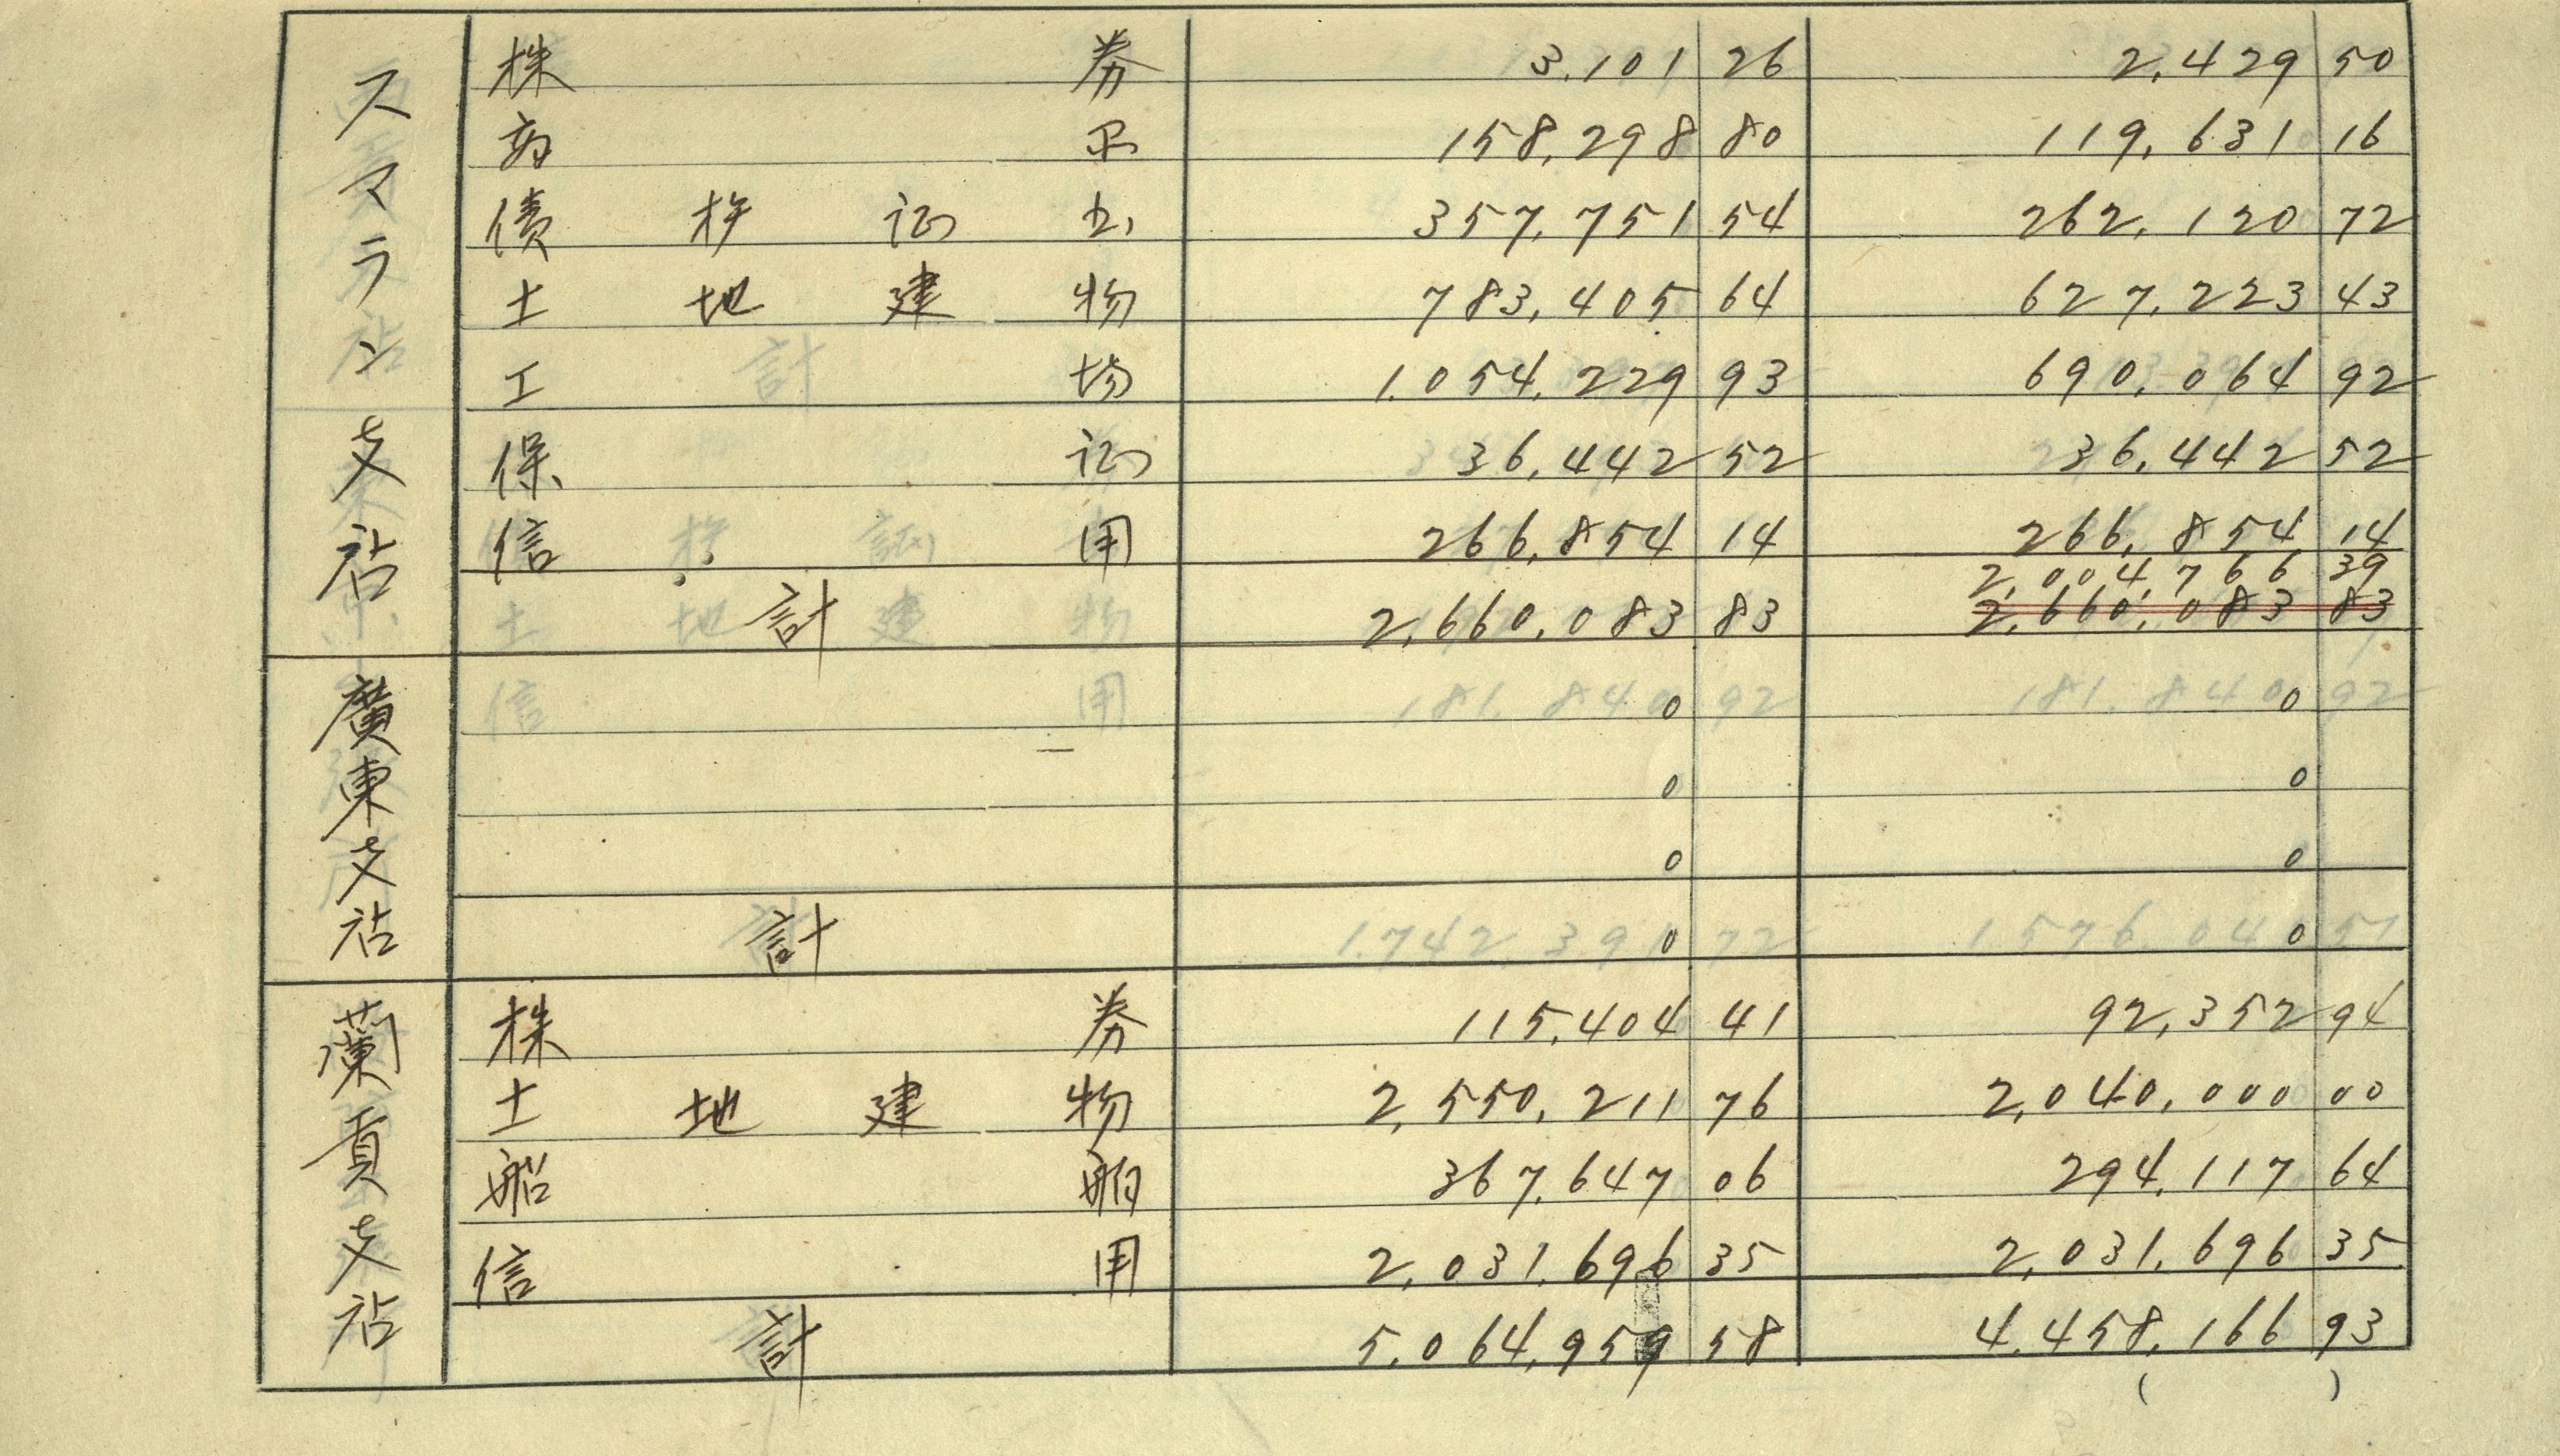 スマラン支店
株券 3,101 26 2,429 50
商品 158,298 80 119,631 16
債权証书 357,751 54 262,120 72
土地建物 783,405 64 627,223 43
工場 1,054,229 93 690,064 92
保証 36,442 52 36,442 52
信用 266,854 14 266,854 14
2,004,766 39
計 2,660,083 83 2,660,083 83
廣東支店
0 0
0 0
0 0
計 0 0
蘭貢支店
株券 115,404 41 92,352 94
土地建物 2,550,211 76 2,040,000 00
船舶 367,647 06 294,117 64
信用 2,031,696 35 2,031,696 35
計 5,064,959 58 4,458,166 93
( )